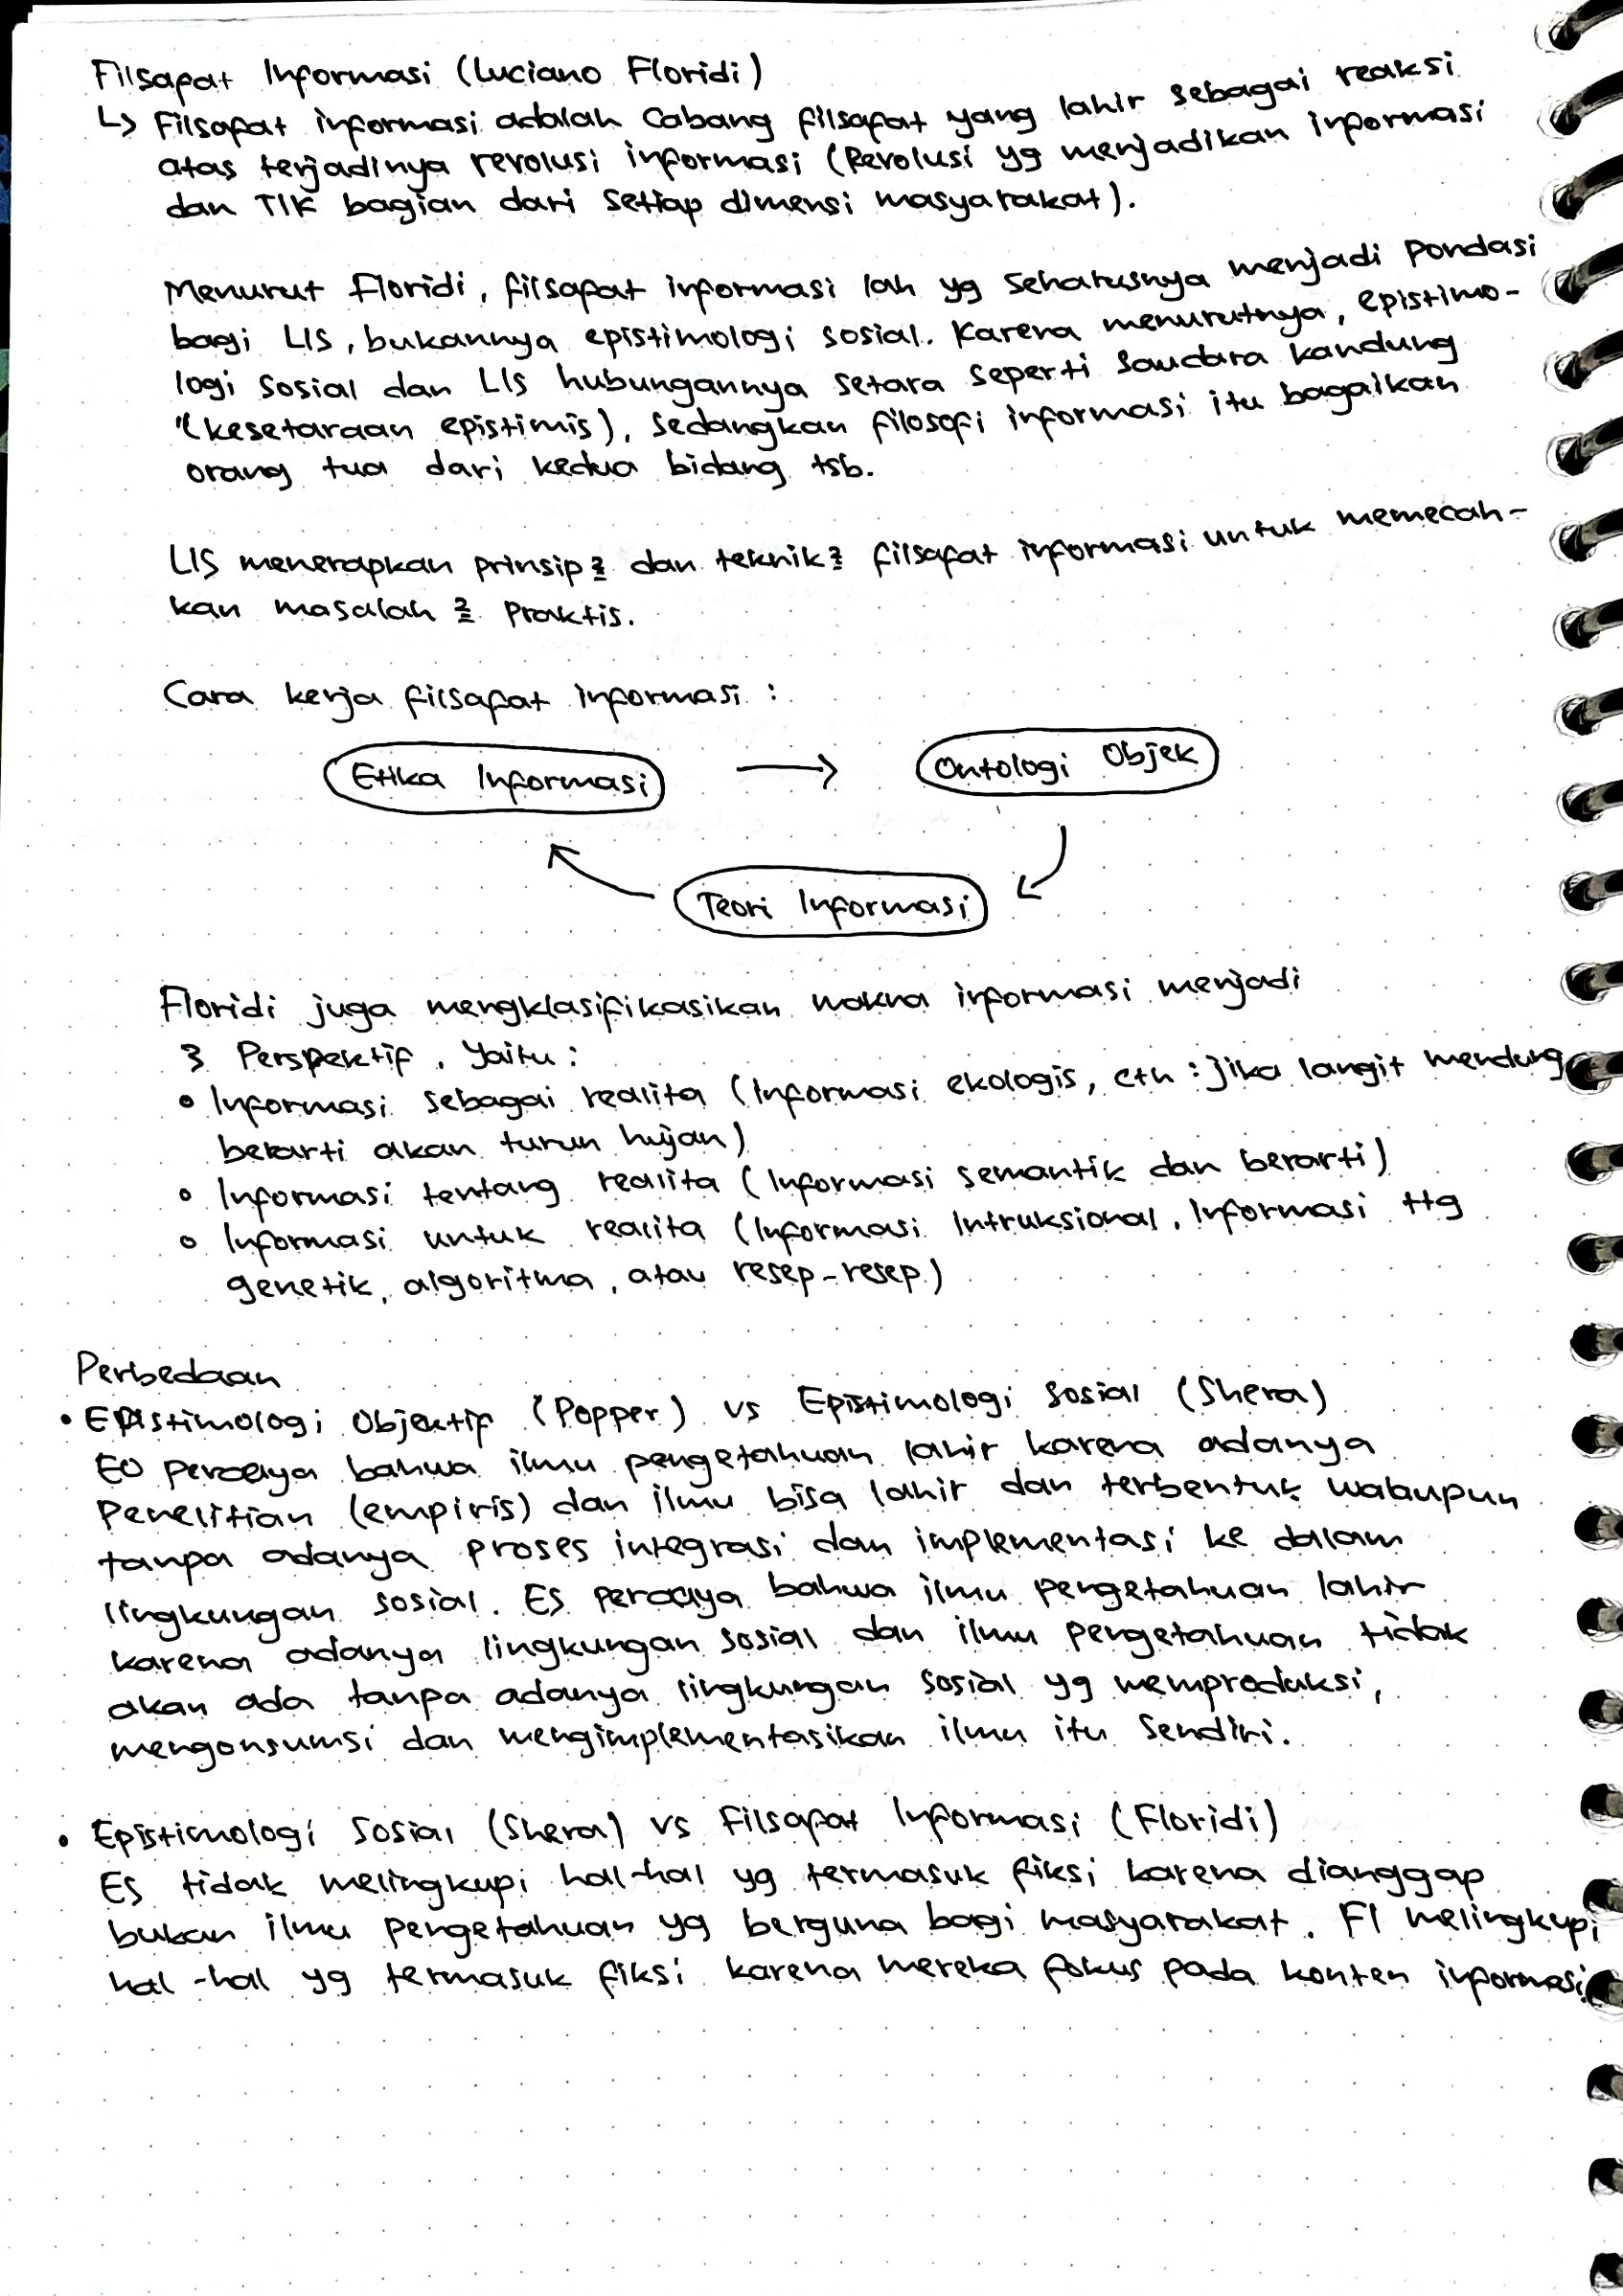 Filsafat Informasi (Luciano Floridi)
↳ Filsafat informasi adalah Cabang filsafat yang lahir sebagai reaksi
atas terjadinya revolusi informasi (Revolusi yg menjadikan informasi
dan TIK bagian dari setiap dimensi masyarakat).
Menurut Floridi, filsafat informasi lah yg seharusnya menjadi pondasi
bagi LIS, bukannya epistimologi sosial. Karena menurutnya, epistimo-
logi sosial dan LIS hubungannya setara seperti saudara kandung
(kesetaraan epistimis), sedangkan filosofi informasi itu bagaikan
orang tua dari kedua bidang tsb.
LIS menerapkan prinsip2 dan teknik2 filsafat informasi untuk memecah-
kan masalah2 praktis.
Cara kerja filsafat informasi :
Etika Informasi → Ontologi Objek
Teori Informasi
Floridi juga mengklasifikasikan makna informasi menjadi
3 Perspektif, Yaitu :
• Informasi sebagai realita (Informasi ekologis, cth : jika langit mendung
berarti akan turun hujan)
• Informasi tentang realita (Informasi semantik dan berarti)
• Informasi untuk realita (Informasi Intruksional, Informasi ttg
genetik, algoritma, atau resep-resep)
Perbedaan
• Epistimologi Objektif (Popper) vs Epistimologi Sosial (Shera)
EO percaya bahwa ilmu pengetahuan lahir karena adanya
Penelitian (empiris) dan ilmu bisa lahir dan terbentuk walaupun
tanpa adanya proses integrasi dan implementasi ke dalam
lingkungan sosial. ES percaya bahwa ilmu pengetahuan lahir
karena adanya lingkungan sosial dan ilmu pengetahuan tidak
akan ada tanpa adanya lingkungan sosial yg memproduksi,
mengonsumsi dan mengimplementasikan ilmu itu sendiri.
• Epistimologi Sosial (Shera) vs Filsafat Informasi (Floridi)
ES tidak melingkupi hal-hal yg termasuk fiksi karena dianggap
bukan ilmu pengetahuan yg berguna bagi masyarakat. FI melingkupi
hal-hal yg termasuk fiksi karena mereka fokus pada konten informasi.